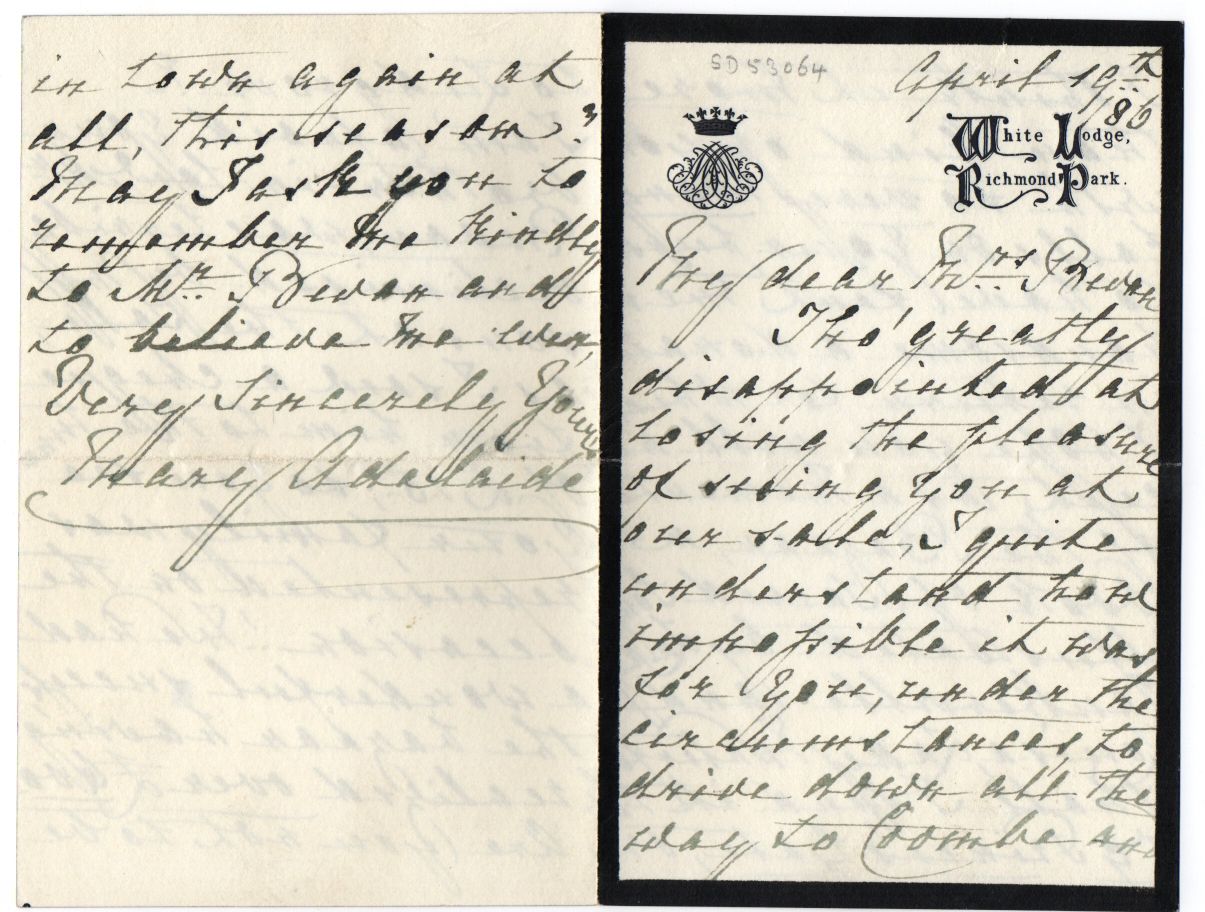 SD53064
April 19th
/86
White Lodge,
Richmond Park.
My dear Mrs Bevan
Tho' greatly
disappointed at
losing the pleasure
of seeing You at
our sale, I quite
understand how
impossible it was
for You, under the
circumstances, to
drive down all the
way to Coombe and
in town again at
all, this season?
May I ask you to
remember me kindly
to Mr Bevan and
to believe me ever,
Very Sincerely Yours
Mary Adelaide